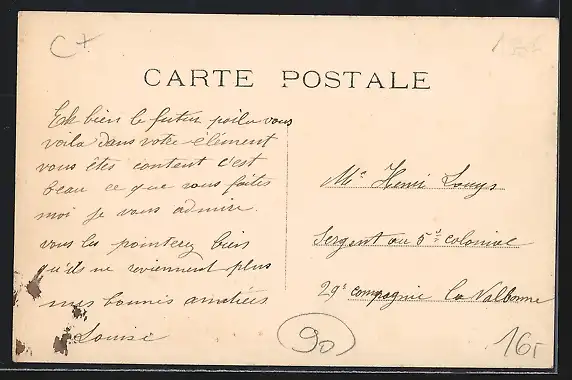 C+
CARTE POSTALE
Eh bien le futur poilu vous
voila dans votre élément
vous êtes content c'est
beau ce que vous faites
moi je vous admire.
vous les pointerez bien
qu'ils ne reviennent plus
mes bonnes amitiées
Louise
Mr Henri Louys
Sergent au 5e colonial
29e compagnie La Valbonne
90
16,